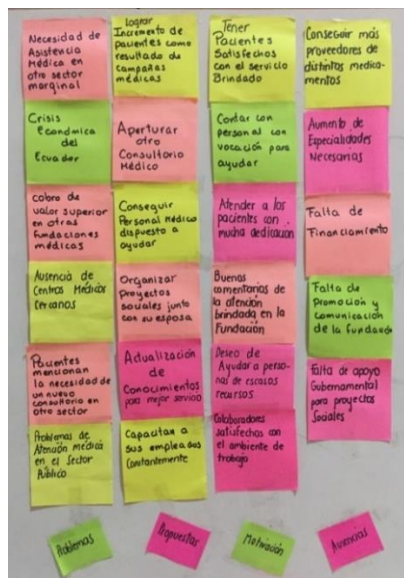 Necesidad de
Asistencia
Médica en
otro sector
marginal
Crisis
Económica
del
Ecuador
cobro de
valor superior
en otras
fundaciones
médicas
Ausencia de
Centros Médicos
Cercanos
Pacientes
mencionan
la necesidad de
un nuevo
consultorio en
otro sector
Problemas de
Atención médica
en el Sector
Público
Lograr
Incremento de
pacientes como
resultado de
campañas
médicas
Aperturar
otro
Consultorio
Médico
Conseguir
Personal Médico
dispuesto a
ayudar
Organizar
Proyectos
sociales junto
con su esposa
Actualización
de
Conocimientos
para mejor servicio
Capacitan a
sus empleados
Constantemente
Tener
Pacientes
Satisfechos
con el servicio
Brindado
Contar con
personal con
vocación para
ayudar
Atender a los
pacientes con
mucha dedicación
Buenos
comentarios de
la atención
brindada en la
Fundación
Deseo de
Ayudar a perso-
nas de escasos
recursos
Colaboradores
satisfechos con
el ambiente de
trabajo
Conseguir más
proveedores de
distintos medica-
mentos
Aumento de
Especialidades
Necesarias
Falta de
Financiamiento
Falta de
Promoción y
comunicación
de la fundación
Falta de apoyo
Gubernamental
para proyectos
Sociales
Problemas
Propuestas
Motivación
Ausencias